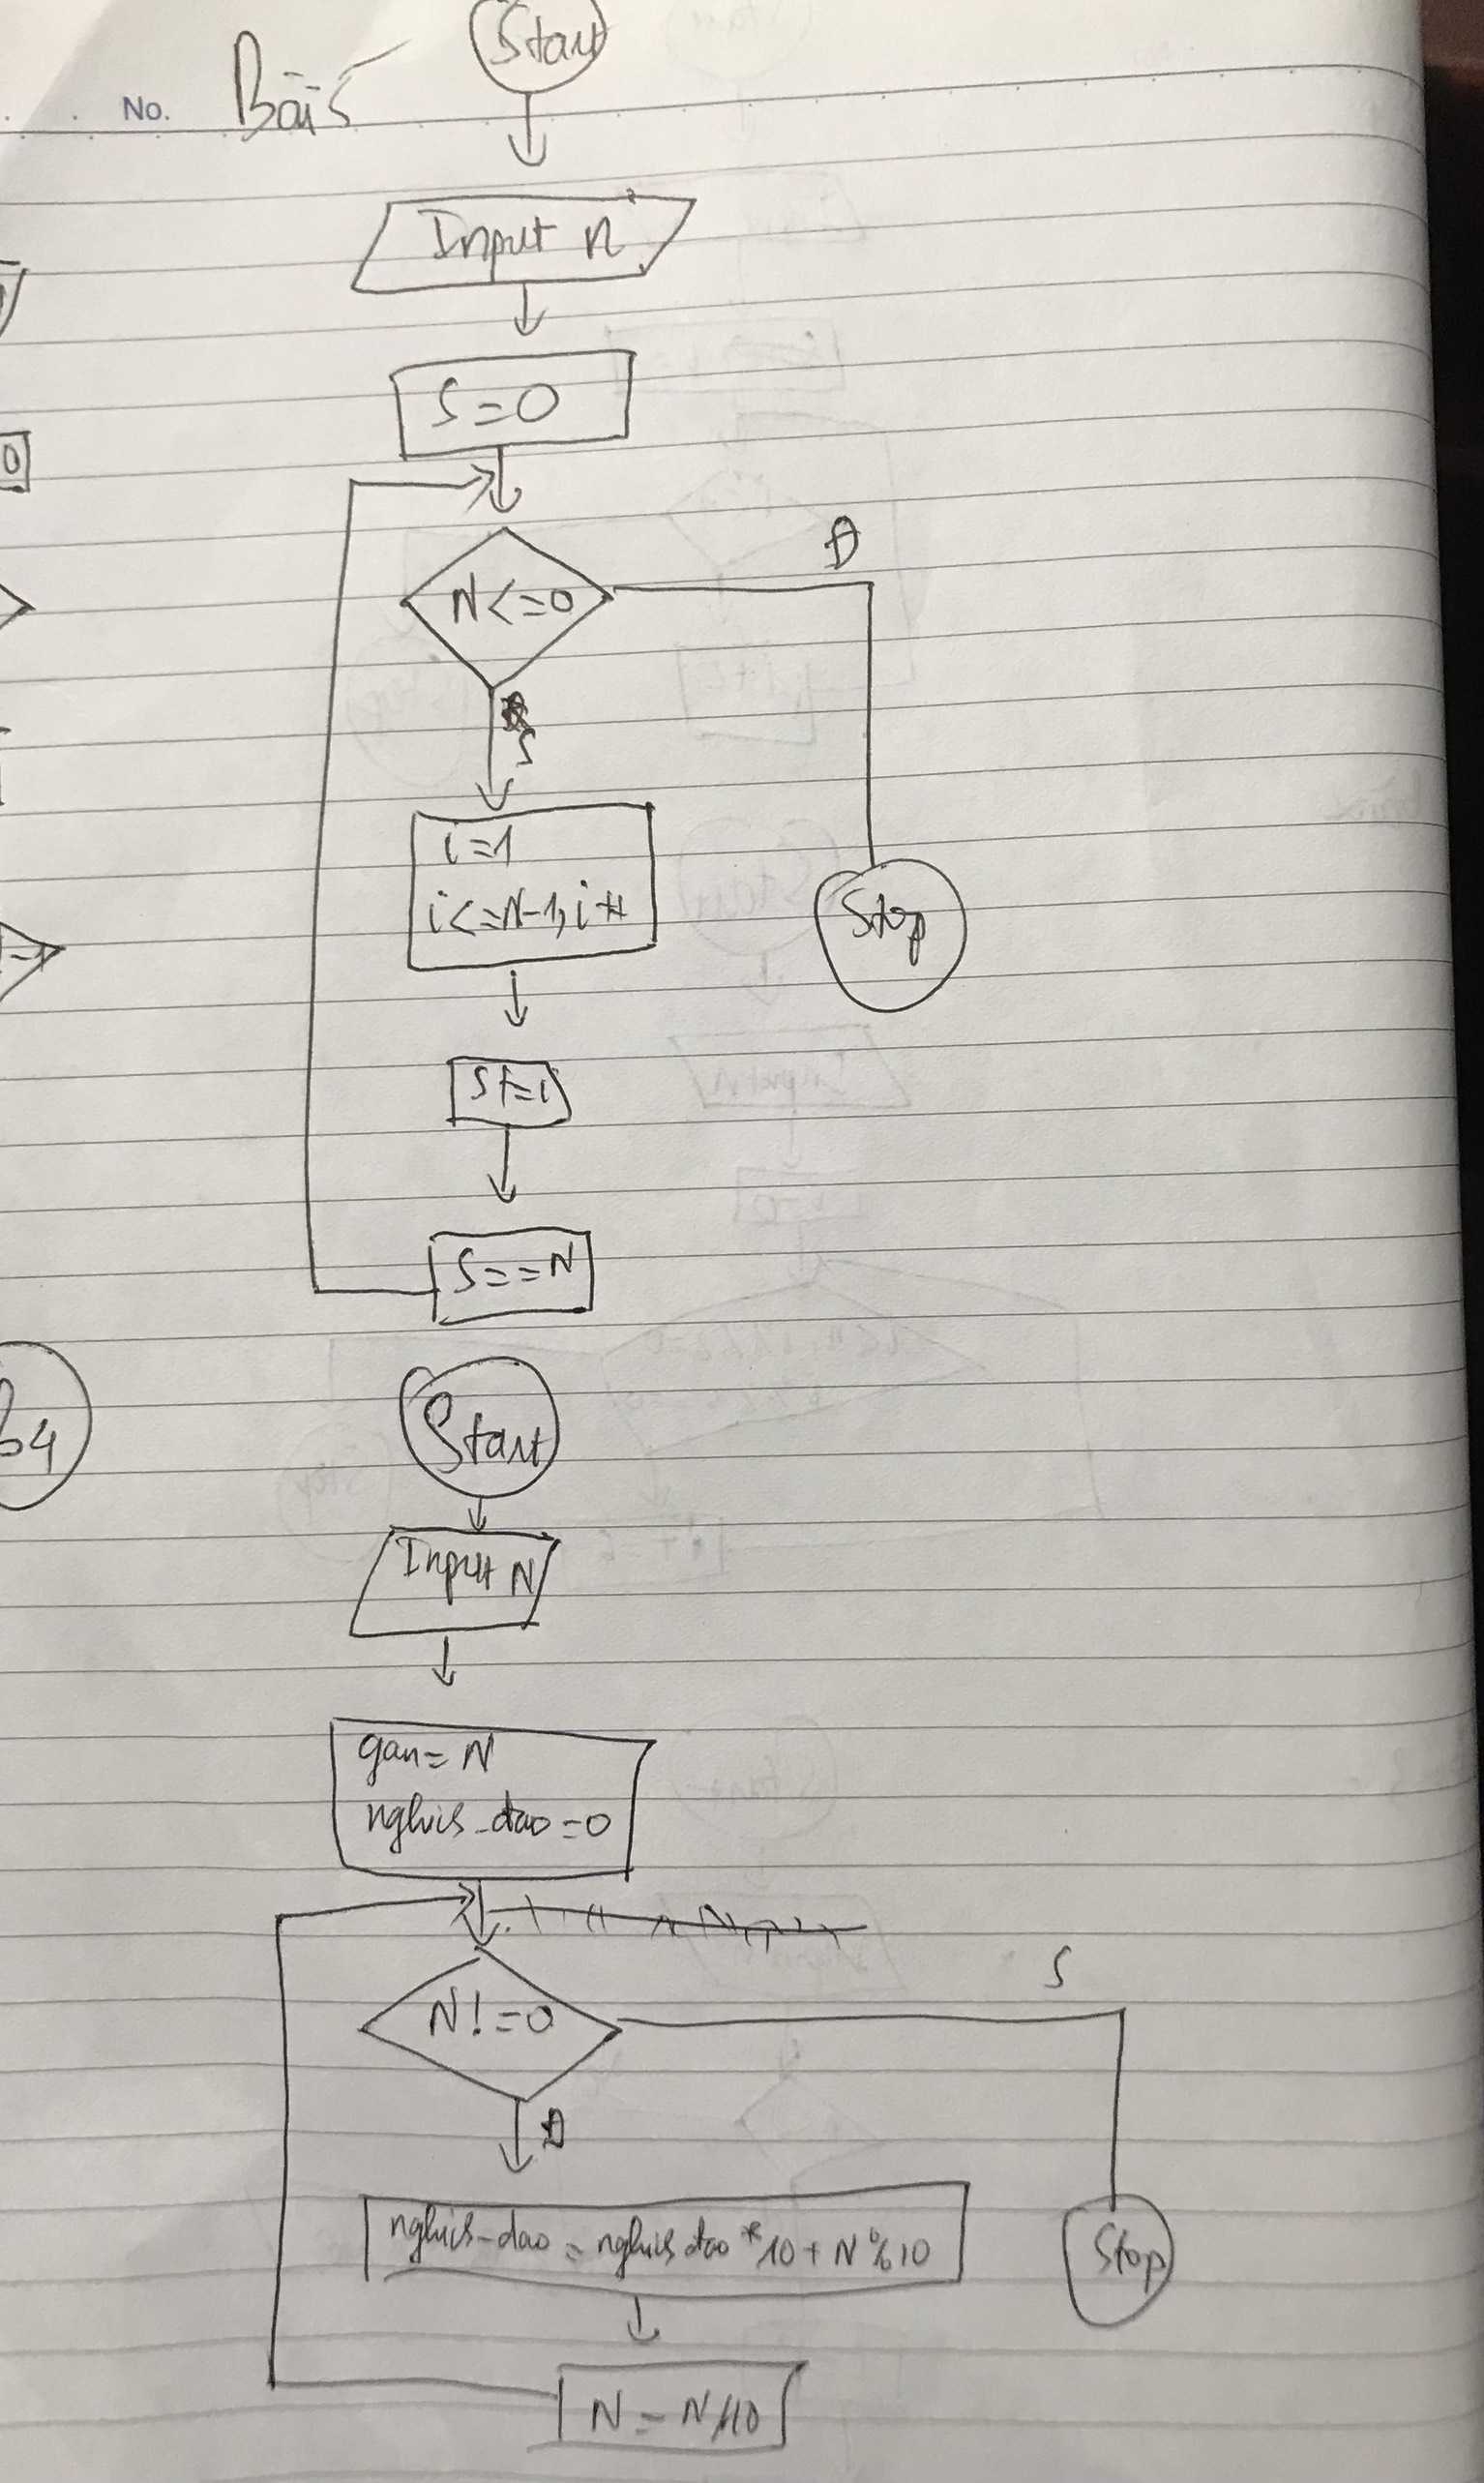 Start
No. Bài 5
Input n
S=0
0
N<=0
Đ
S
i=1
i<=N-1, i++
Stop
S+=i
S==N
b4
Start
Input N
gan=N
nghich_dao=0
N!=0
S
Đ
nghich_dao = nghich dao * 10 + N % 10
Stop
N = N/10